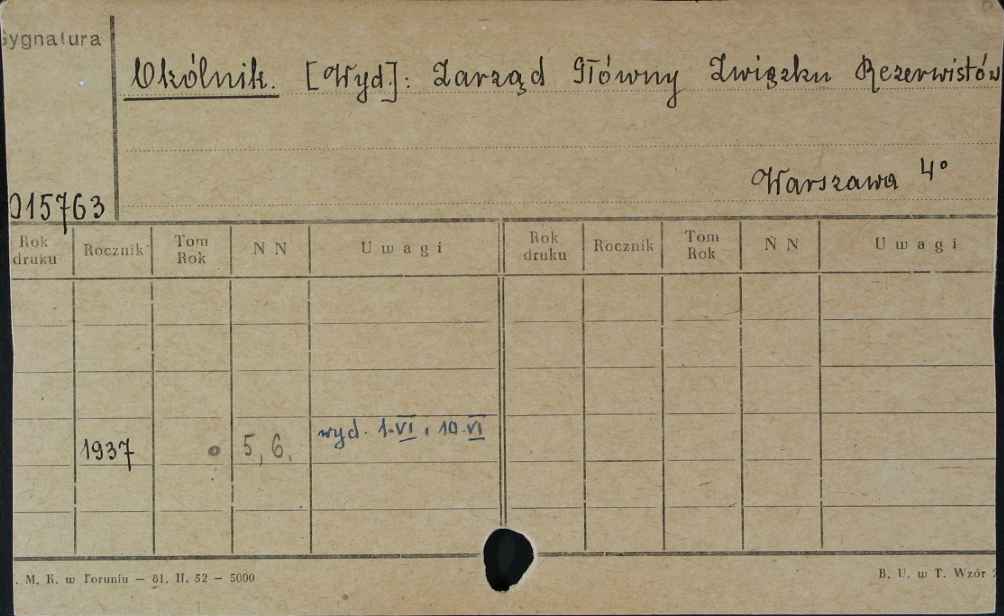 Sygnatura
Okólnik. [Wyd]: Zarząd Główny Związku Rezerwistów
Warszawa 4°
015763
Rok druku Rocznik Tom Rok N N Uwagi Rok druku Rocznik Tom Rok N N Uwagi
1937 5, 6. wyd. 1-VI i 10-VI
. M. K. w Toruniu — 61. II. 52 — 5000 B. U. w T. Wzór